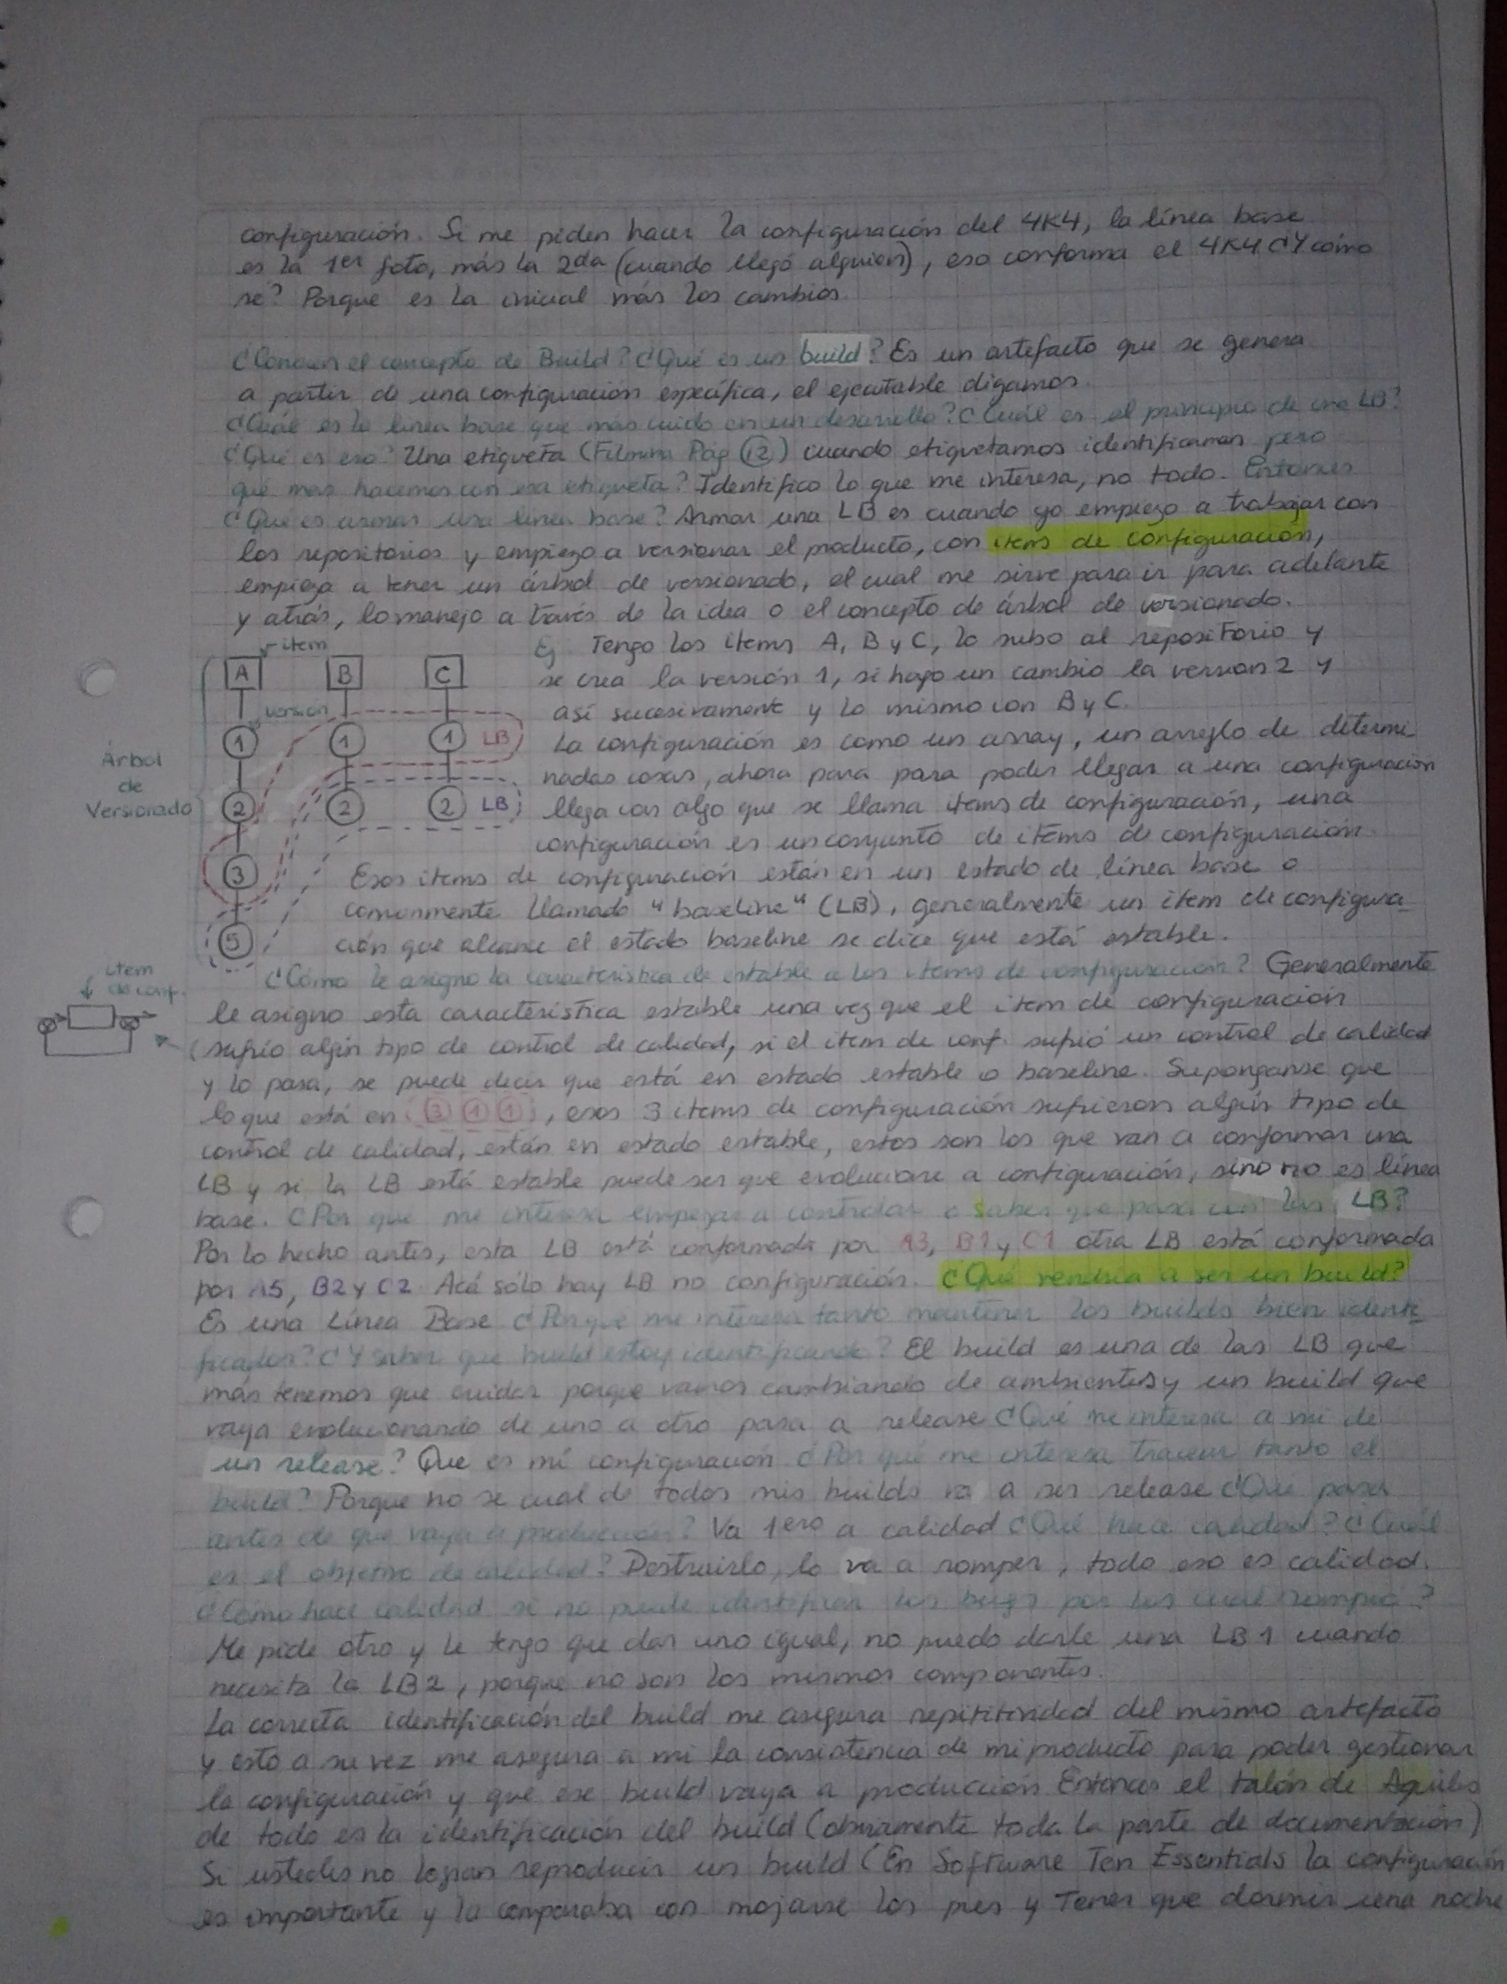 configuración. Si me piden hacer la configuración del 4K4, la línea base
es la 1er foto, más la 2da (cuando llegó alguien), eso conforma el 4K4 ¿Y cómo
se? Porque es la inicial más los cambios.
¿Conocen el concepto de Build? ¿Qué es un build? Es un artefacto que se genera
a partir de una configuración específica, el ejecutable digamos.
¿Cuál es la línea base que más cuido en un desarrollo? ¿Cuál es el principio de una LB?
¿Qué es eso? Una etiqueta (Filmina Pág 12) cuando etiquetamos identificamos pero
qué más hacemos con esa etiqueta? Identifico lo que me interesa, no todo. Entonces
¿Qué es armar una línea base? Armar una LB es cuando yo empiezo a trabajar con
los repositorios y empiezo a versionar el producto, con items de configuración,
empieza a tener un árbol de versionado, el cual me sirve para ir para adelante
y atrás, lo manejo a través de la idea o el concepto de árbol de versionado.
item
A B C
versión
1 1 1 LB
2 2 2 LB
3
5
Árbol
de
Versionado
Ej Tengo los items A, B y C, lo subo al repositorio y
se crea la versión 1, si hago un cambio la version 2 y
así sucesivamente y lo mismo con B y C.
La configuración es como un array, un arreglo de determi-
nadas cosas, ahora para para poder llegar a una configuración
llega con algo que se llama items de configuración, una
configuración es un conjunto de items de configuración.
Esos items de configuración están en un estado de línea base o
comunmente llamado "baseline" (LB), generalmente un item de configura-
ción que alcance el estado baseline se dice que está estable.
item
de conf.
¿Cómo le asigno la característica de estable a los items de configuración? Generalmente
le asigno esta característica estable una vez que el item de configuración
sufrio algún tipo de control de calidad, si el item de conf. sufrió un control de calidad
y lo pasa, se puede decir que está en estado estable o baseline. Suponganse que
lo que está en 3 1 1, esos 3 items de configuración sufrieron algún tipo de
control de calidad, están en estado estable, estos son los que van a conformar una
LB y si la LB está estable puede ser que evolucione a configuración, sino no es línea
base. ¿Por que me interesa empezar a controlar o saber que pasa con las LB?
Por lo hecho antes, esta LB está conformada por A3, B1 y C1 otra LB está conformada
por A5, B2 y C2. Acá sólo hay LB no configuración. ¿Qué vendría a ser un build?
Es una Línea Base ¿Porque me interesa tanto mantener los builds bien identi-
ficados? ¿Y saber que build estoy identificando? El build es una de las LB que
más tenemos que cuidar porque vamos cambiando de ambientes y un build que
vaya evolucionando de uno a otro pasa a release ¿Qué me interesa a mi de
un release? Que es mi configuración ¿Por qué me interesa tracear tanto el
build? Porque no se cual de todos mis builds va a ser release ¿Que pasa
antes de que vaya a producción? Va 1ero a calidad ¿Qué hace calidad? ¿Cuál
es el objetivo de calidad? Destruirlo, lo va a romper, todo eso es calidad.
¿Cómo hace calidad si no puede identificar los bugs por los cual rompió?
Me pide otro y le tengo que dar uno igual, no puedo darle una LB1 cuando
necesita la LB2, porque no son los mismos componentes.
La correcta identificación del build me asegura repititividad del mismo artefacto
y esto a su vez me asegura a mi la consistencia de mi producto para poder gestionar
la configuración y que ese build vaya a producción. Entonces el talón de Aquiles
de todo es la identificación del build (obviamente toda la parte de documentación)
Si ustedes no logran reproducir un build (En Software Ten Essentials la configuración
es importante y la comparaba con mojarse los pies y tener que dormir una noche